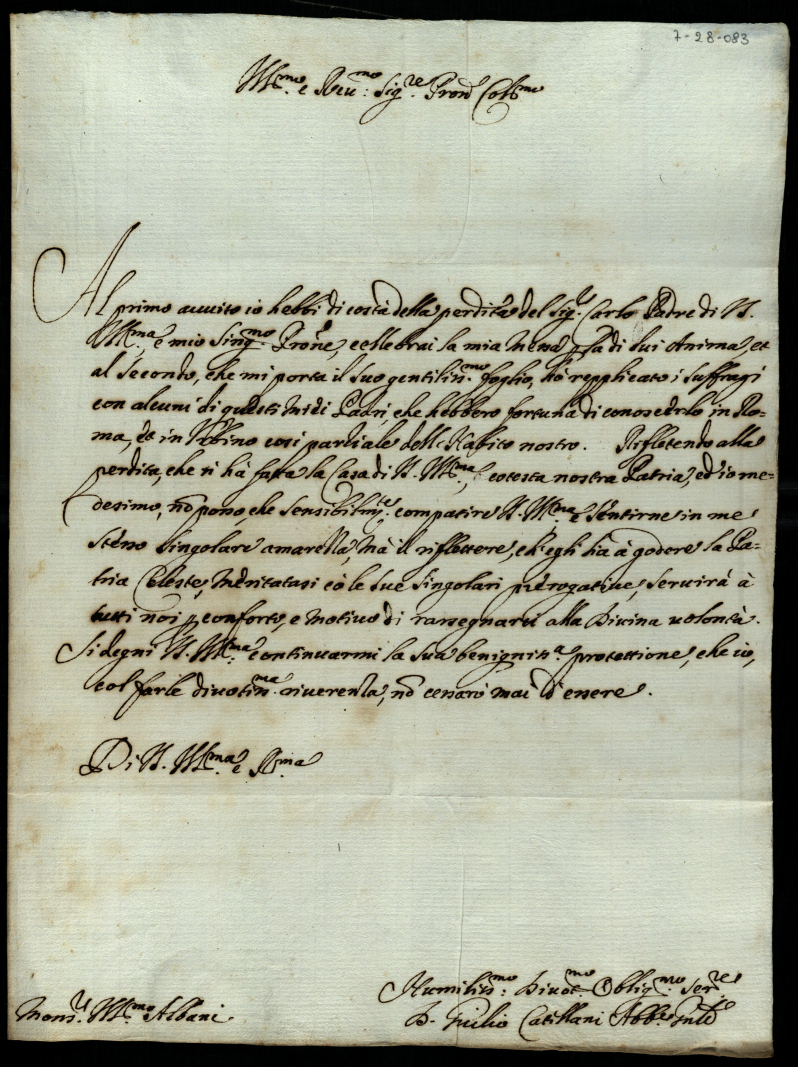 7-28-083
Ill.mo e Reu.mo Sig.re Pron Col.mo
Al primo auuiso io hebbi di costà della perdita del Sig.r Carlo Padre di V.
Ill.ma, e mio Sing.mo Prone, cellebrai la mia Messa p. la di lui Anima, et
al secondo, che mi porta il suo gentiliss.mo foglio, hò repplicato i suffragi
con alcuni di questi miei Padri, che hebbero fortuna di conoscerlo in Ro=
ma, et in Vrbino così partiale dell'Habito nostro. Riflettendo alla
perdita, che si hà fatta la Casa di V. Ill.ma, e cotesta nostra Patria, ed io me=
desimo, nõ posso, che sensibilm.te compatire V. Ill.ma e sentirne in me
stesso singolare amarezza, mà il riflettere, ch'egli hà à godere la Pa=
tria Celeste, meritatasi cõ le sue singolari prerogatiue, seruirà à
tutti noi p conforto, e motiuo di rassegnarci alla Diuina uolontà.
Si degni V. Ill.ma continuarmi la sua benigniss.a protettione, che io,
col farle diuotiss.ma riuerenza, nõ cessarò mai d'essere.
Di V. Ill.ma e R.ma
Humiliss.mo Diuot.mo Oblig.mo Ser.re
Mons.r Ill.mo Albani
D. Giulio Abb.e